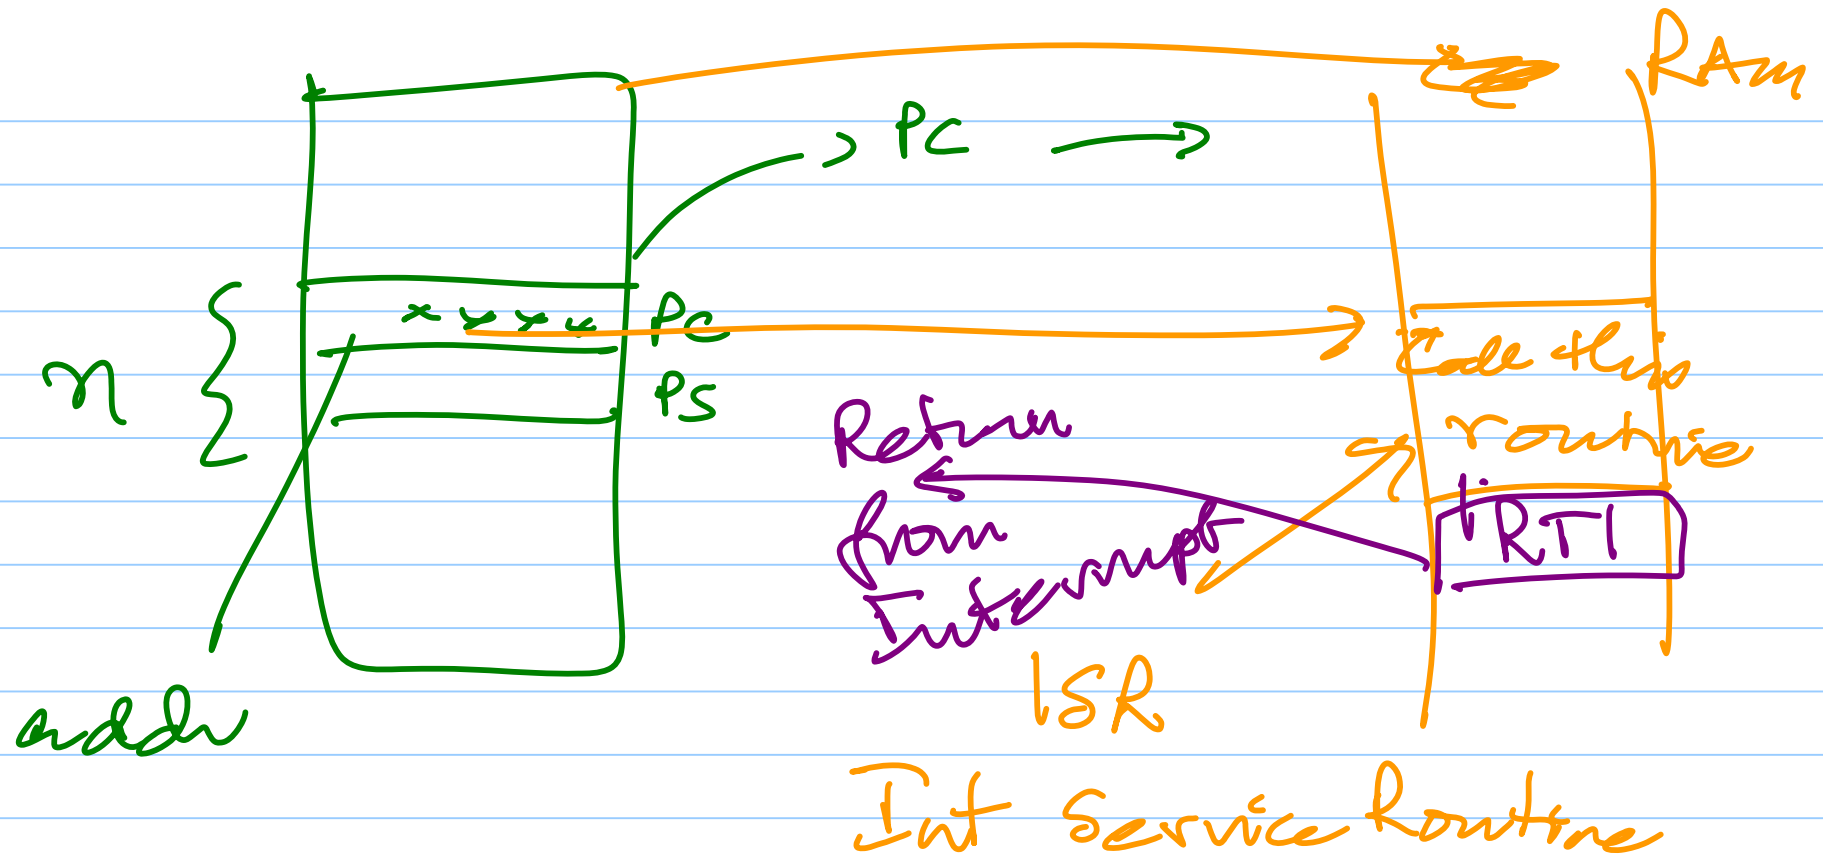 RAM
PC
x x x x PC
n
PS
Code this
routine
Return
from
Interrupt
IRTI
ISR
addr
Int Service Routine